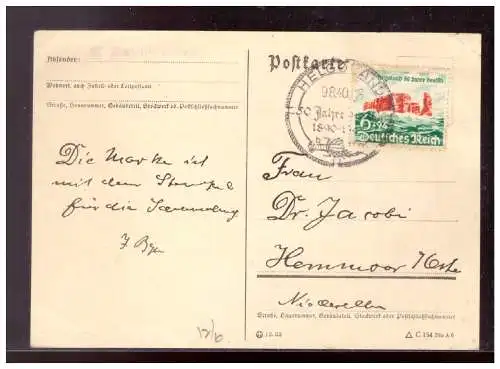 Absender:
Wohnort, auch Zustell- oder Leitpostamt
Straße, Hausnummer, Gebäudeteil, Stockwerk od. Postschließfachnummer
Postkarte
HELGOLAND
9.8.40
50 Jahre
1890-1
Helgoland 50 Jahre deutsch
6+94
Deutsches Reich
Die Marke ist
mit dem Stempel
für die Sammlung
Frau
Dr. Jacobi
Hemmoor
Niederelbe
Straße, Hausnummer, Gebäudeteil, Stockwerk od. Postschließfachnummer
C 154 Din A 6